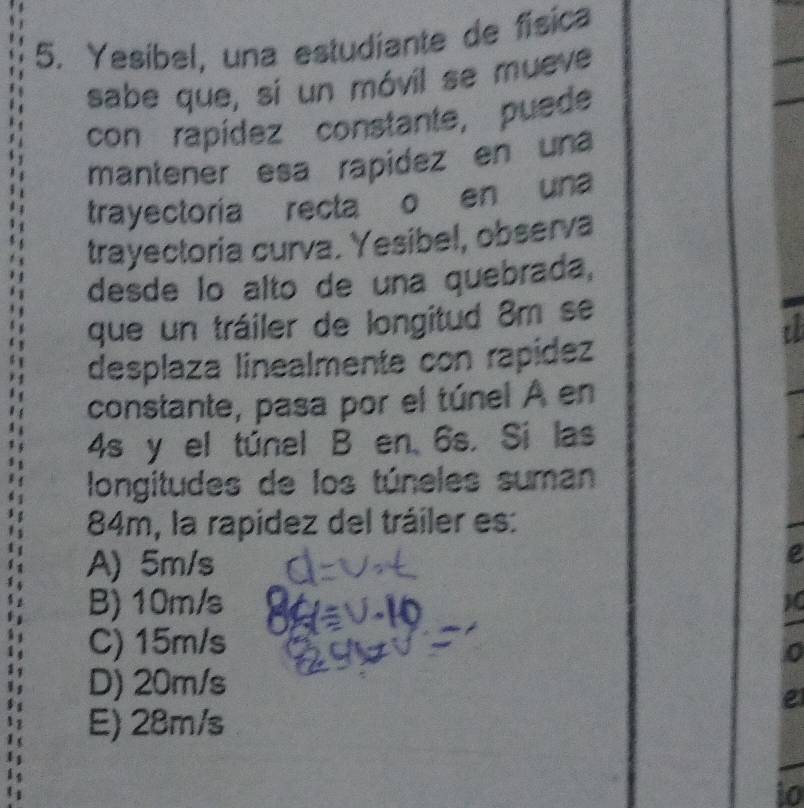 5. Yesibel, una estudiante de física
sabe que, si un móvil se mueve
con rapidez constante, puede
mantener esa rapidez en una
trayectoria recta o en una
trayectoria curva. Yesibel, observa
desde lo alto de una quebrada,
que un tráiler de longitud 8m se
desplaza linealmente con rapidez
constante, pasa por el túnel A en
4s y el túnel B en 6s. Si las
longitudes de los túneles suman
84m, la rapidez del tráiler es:
A) 5m/s
B) 10m/s
C) 15m/s
D) 20m/s
E) 28m/s
d=v.t
84=v.10